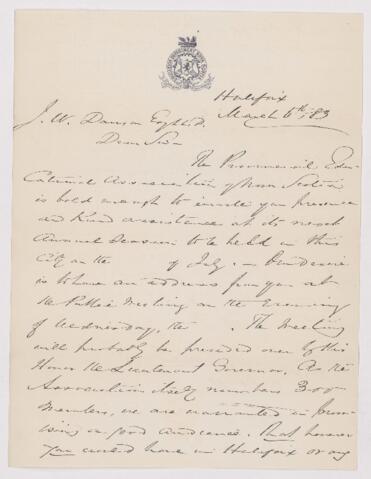 Halifax
March 6th/83
J. W. Dawson Esq
Dear Sir
The Provincial Edu-
cational Association of Nova Scotia
is bold enough to invite your presence
and kind assistance at its next
Annual Session to be held in this
City on the of July. Our desire
is to have an address from you at
the Public Meeting on the Evening
of Wednesday, the . The Meeting
will probably be presided over by His
Honor the Lieutenant Governor. As the
Association itself numbers 300
Members, we are warranted in prom-
ising a good audience. That however
you would have in Halifax on any